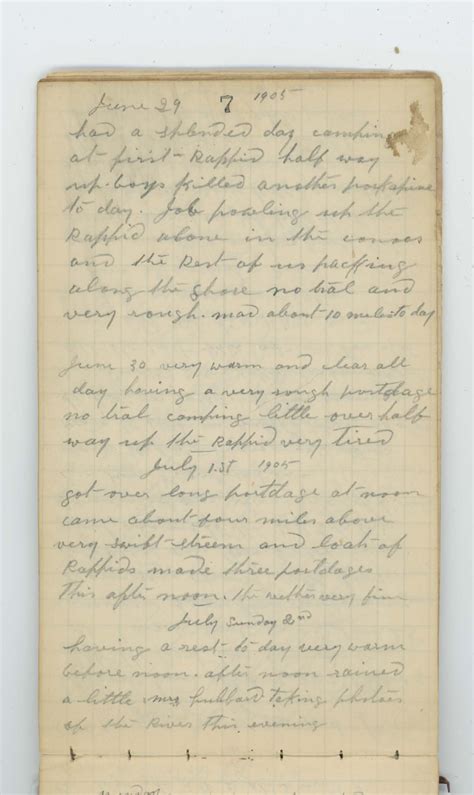 June 29 7 1905
had a splended day camping
at first Rappid half way
up. boys killed another porkspine
to day. Job powling up the
Rappid alone in the canoes
and the Rest of us packing
along the shore no tral and
very rough. mad about 10 miles to day
June 30 very warm and clear all
day having a very rough postdage
no tral camping little over half
way up the Rappid very tired
July 1st 1905
got over long postdage at noon
came about four miles above
very swift streem and loats of
Rappids made three postdages
this after noon. the wether very fine
July Sunday 2nd
having a rest to day very warm
before noon. after noon rained
a little Mrs Hubbard taking photoes
of the River this evening